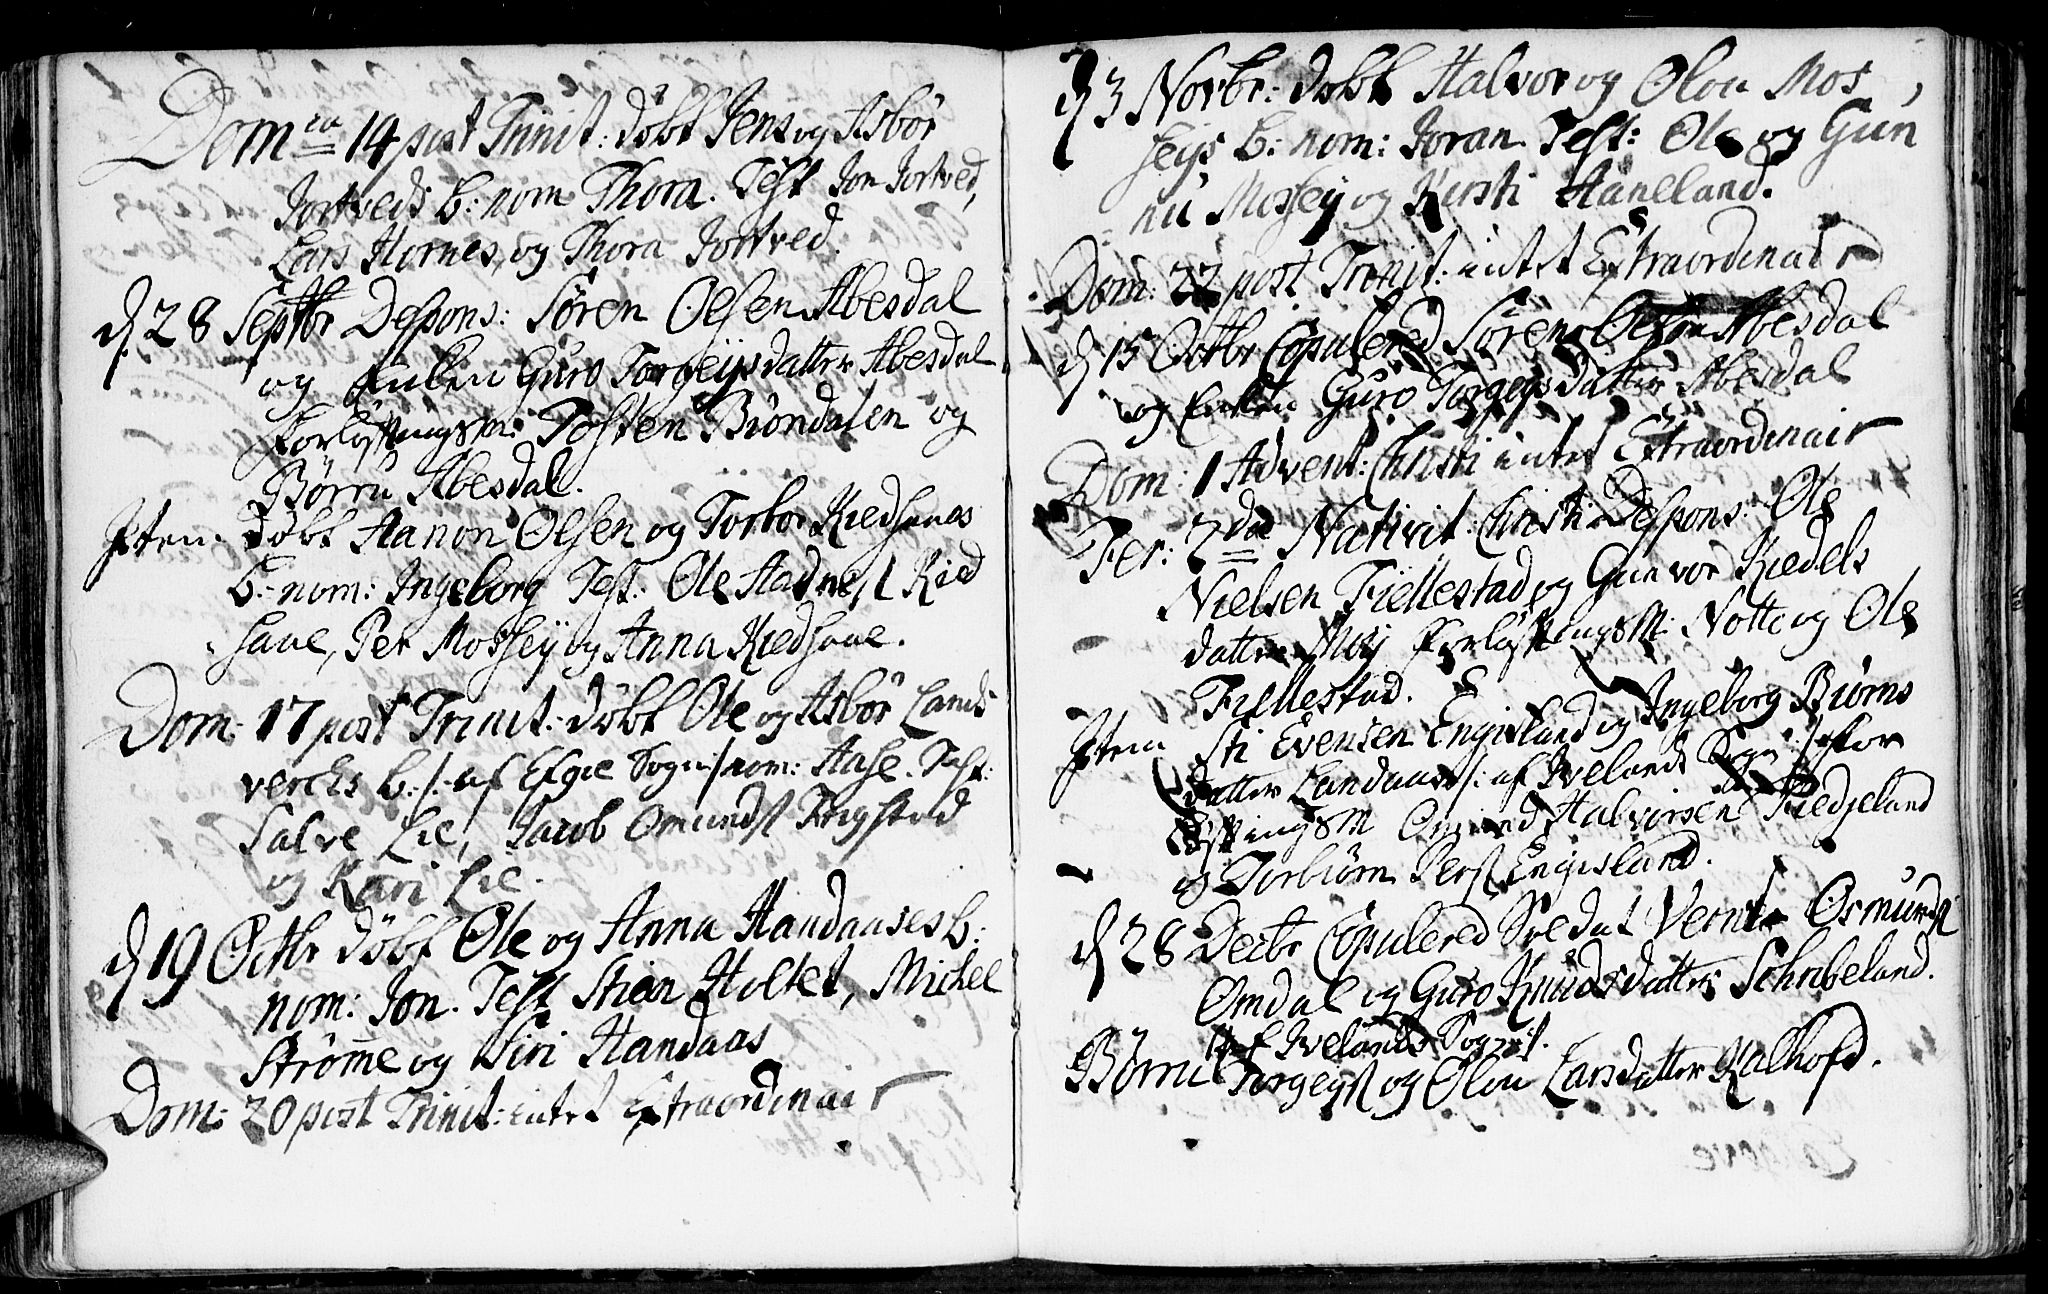 Dom ca 14 post Trinit: døbt Jens og Asbör
Jortveds b: nom Thora. Test Jon Jortved,
Lars Hornes, og Thora Jortved.
d 28 Septbr Despons: Sören Olsen Abesdal
og Enken Guro Torgeysdatter Abesdal
Forløftningsm: Tosten Biöndalen og
Børru Abesdal.
Item døbt Aanon Olsen og Torbor Kiedhaues
b: nom: Ingeborg Test: Ole Aadnest Kied
haue, Per Mossey og Anna Kiedhaue.
Dom: 17 post Trinit: døbt Ole og Asbör Lands
verchs b: /: af Efgie Sogn :/ nom: Aase. Test:
Salve Lie, Jacob Omundst Frigstad
og Kari Lie.
d 19 Octbr døbt Ole og Anna Haandaases b:
nom: Jon. Test Stian Holtet, Michel
Strømme og Siri Haandaas
Dom: 20 post Trinit: intet Extraordinair
d 3 Novbr: døbt Halvor og Olou Mos
seys b: nom: Joran. Test: Ole og Gun
nu Mossey og Kirsti Haneland.
Dom: 22 post Trinit: intet Extraordinair
d 15 Octbr Copulered Sören Olsen Abesdal
og Enken Guro Torgeysdatter Abesdal
Dom: 1 Advent: Christi intet Extraordinair
Fer: 2dae Nativit: Christi Despons: Ole
Nielsen Fiellestad og Gunvor Kiedels
datter Moy Forløftningsm: Notto og Ole
Fiellestad.
Item Sti Evensen Engisland og Ingeborg Biørns
datter Landaas /: af Ivelands Sogn :/ For
løftningsm Omund Halvorsen Kiedjeland
og Torbiørn Perst Engisland.
d 28 Decbr Copulered Soldat Vernt Osmundst
Omdal og Guro Knudsdatter Schribeland.
/: af Ivelands Sogn :/.
Børru Torgeyst og Olou Larsdatter Kalhofd.